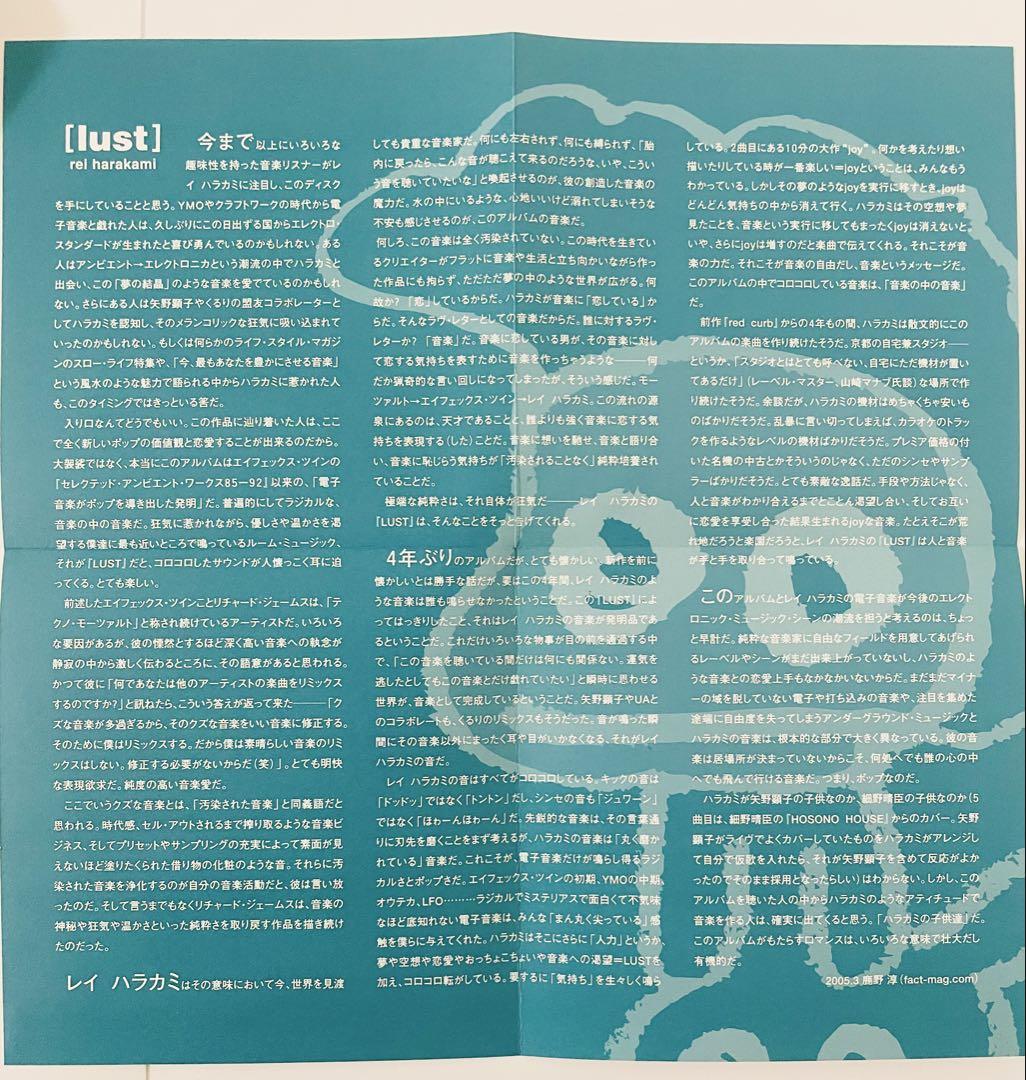 [lust]
rei harakami
今まで以上にいろいろな
趣味性を持った音楽リスナーがレ
イ ハラカミに注目し、このディスク
を手にしていることと思う。YMOやクラフトワークの時代から電
子音楽と戯れた人は、久しぶりにこの日出ずる国からエレクトロ・
スタンダードが生まれたと喜び勇んでいるのかもしれない。ある
人はアンビエント→エレクトロニカという潮流の中でハラカミと
出会い、この「夢の結晶」のような音楽を愛でているのかもしれ
ない。さらにある人は矢野顕子やくるりの盟友コラボレーターと
してハラカミを認知し、そのメランコリックな狂気に吸い込まれて
いったのかもしれない。もしくは何らかのライフ・スタイル・マガジ
ンのスロー・ライフ特集や、「今、最もあなたを豊かにさせる音楽」
という風水のような魅力で語られる中からハラカミに惹かれた人
も、このタイミングではきっといる筈だ。
入り口なんてどうでもいい。この作品に辿り着いた人は、ここ
で全く新しいポップの価値観と恋愛することが出来るのだから。
大袈裟ではなく、本当にこのアルバムはエイフェックス・ツインの
『セレクテッド・アンビエント・ワークス85−92』以来の、「電子
音楽がポップを導き出した発明」だ。普遍的にしてラジカルな、
音楽の中の音楽だ。狂気に惹かれながら、優しさや温かさを渇
望する僕達に最も近いところで鳴っているルーム・ミュージック、
それが『LUST』だと、コロコロしたサウンドが人懐っこく耳に迫
ってくる。とても楽しい。
前述したエイフェックス・ツインことリチャード・ジェームスは、「テ
クノ・モーツァルト」と称され続けているアーティストだ。いろいろ
な要因があるが、彼の慄然とするほど深く高い音楽への執念が
静寂の中から激しく伝わるところに、その語意があると思われる。
かつて彼に「何であなたは他のアーティストの楽曲をリミックス
するのですか?」と訊ねたら、こういう答えが返って来た―――「ク
ズな音楽が多過ぎるから、そのクズな音楽をいい音楽に修正する。
そのために僕はリミックスする。だから僕は素晴らしい音楽のリミ
ックスはしない。修正する必要がないからだ(笑)」。とても明快
な表現欲求だ。純度の高い音楽愛だ。
ここでいうクズな音楽とは、「汚染された音楽」と同義語だと
思われる。時代感、セル・アウトされるまで搾り取るような音楽ビ
ジネス、そしてプリセットやサンプリングの充実によって素面が見
えないほど塗りたくられた借り物の化粧のような音。それらに汚
染された音楽を浄化するのが自分の音楽活動だと、彼は言い放
ったのだ。そして言うまでもなくリチャード・ジェームスは、音楽の
神秘や狂気や温かさといった純粋さを取り戻す作品を描き続け
たのだった。
レイ ハラカミはその意味において今、世界を見渡
しても貴重な音楽家だ。何にも左右されず、何にも縛られず、「胎
内に戻ったら、こんな音が聴こえて来るのだろうな、いや、こうい
う音を聴いていたいな」と喚起させるのが、彼の創造した音楽の
魔力だ。水の中にいるような、心地いいけど溺れてしまいそうな
不安も感じさせるのが、このアルバムの音楽だ。
何しろ、この音楽は全く汚染されていない。この時代を生きてい
るクリエイターがフラットに音楽や生活と立ち向かいながら作っ
た作品にも拘らず、ただただ夢の中のような世界が広がる。何
故か? 「恋」しているからだ。ハラカミが音楽に「恋している」か
らだ。そんなラヴ・レターとしての音楽だからだ。誰に対するラヴ・
レターか? 「音楽」だ。音楽に恋している男が、その音楽に対し
て恋する気持ちを表すために音楽を作っちゃうような―――何
だか猟奇的な言い回しになってしまったが、そういう感じだ。モー
ツァルト→エイフェックス・ツイン→レイ ハラカミ。この流れの源
泉にあるのは、天才であることと、誰よりも強く音楽に恋する気
持ちを表現する(した)ことだ。音楽に想いを馳せ、音楽と語り合
い、音楽に恥じらう気持ちが「汚染されることなく」純粋培養され
ていることだ。
極端な純粋さは、それ自体が狂気だ―――レイ ハラカミの
『LUST』は、そんなことをそっと告げてくれる。
4年ぶりのアルバムだが、とても懐かしい。新作を前に
懐かしいとは勝手な話だが、要はこの4年間、レイ ハラカミのよ
うな音楽は誰も鳴らせなかったということだ。この『LUST』によ
ってはっきりしたこと、それはレイ ハラカミの音楽が発明品であ
るということだ。これだけいろいろな物事が目の前を通過する中
で、「この音楽を聴いている間だけは何にも関係ない。運気を
逃したとしてもこの音楽とだけ戯れていたい」と瞬時に思わせる
世界が、音楽として完成しているということだ。矢野顕子やUAと
のコラボレートも、くるりのリミックスもそうだった。音が鳴った瞬
間にその音楽以外にまったく耳や目がいかなくなる、それがレイ
ハラカミの音だ。
レイ ハラカミの音はすべてがコロコロしている。キックの音は
「ドッドッ」ではなく「トントン」だし、シンセの音も「ジュワーン」
ではなく「ほわーんほわーん」だ。先鋭的な音楽は、その言葉通
りに刃先を磨くことをまず考えるが、ハラカミの音楽は「丸く磨か
れている」音楽だ。これこそが、電子音楽だけが鳴らし得るラジ
カルさとポップさだ。エイフェックス・ツインの初期、YMOの中期、
オウテカ、LFO………ラジカルでミステリアスで面白くて不気味
なほど底知れない電子音楽は、みんな「まん丸く尖っている」感
触を僕らに与えてくれた。ハラカミはそこにさらに「人力」というか、
夢や空想や恋愛やおっちょこちょいや音楽への渇望=LUSTを
加え、コロコロ転がしている。要するに「気持ち」を生々しく鳴ら
している。2曲目にある10分の大作“joy”。何かを考えたり想い
描いたりしている時が一番楽しい=joyということは、みんなもう
わかっている。しかしその夢のようなjoyを実行に移すとき、joyは
どんどん気持ちの中から消えて行く。ハラカミはその空想や夢
見たことを、音楽という実行に移してもまったくjoyは消えないと、
いや、さらにjoyは増すのだと楽曲で伝えてくれる。それこそが音
楽の力だ。それこそが音楽の自由だし、音楽というメッセージだ。
このアルバムの中でコロコロしている音楽は、「音楽の中の音楽」
だ。
前作『red curb』からの4年もの間、ハラカミは散文的にこの
アルバムの楽曲を作り続けたそうだ。京都の自宅兼スタジオ――
というか、「スタジオとはとても呼べない、自宅にただ機材が置い
てあるだけ」(レーベル・マスター、山崎マナブ氏談)な場所で作
り続けたそうだ。余談だが、ハラカミの機材はめちゃくちゃ安いも
のばかりだそうだ。乱暴に言い切ってしまえば、カラオケのトラッ
クを作るようなレベルの機材ばかりだそうだ。プレミア価格の付
いた名機の中古とかそういうのじゃなく、ただのシンセやサンプ
ラーばかりだそうだ。とても素敵な逸話だ。手段や方法じゃなく、
人と音楽がわかり合えるまでとことん渇望し合い、そしてお互い
に恋愛を享受し合った結果生まれるjoyな音楽。たとえそこが荒
れ地だろうと楽園だろうと、レイ ハラカミの『LUST』は人と音楽
が手と手を取り合って鳴っている。
このアルバムとレイ ハラカミの電子音楽が今後のエレクト
ロニック・ミュージック・シーンの潮流を担うと考えるのは、ちょっ
と早計だ。純粋な音楽家に自由なフィールドを用意してあげられ
るレーベルやシーンがまだ出来上がっていないし、ハラカミのよ
うな音楽との恋愛上手もなかなかいないからだ。まだまだマイナ
ーの域を脱していない電子や打ち込みの音楽や、注目を集めた
途端に自由度を失ってしまうアンダーグラウンド・ミュージックと
ハラカミの音楽は、根本的な部分で大きく異なっている。彼の音
楽は居場所が決まっていないからこそ、何処へでも誰の心の中
へでも飛んで行ける音楽だ。つまり、ポップなのだ。
ハラカミが矢野顕子の子供なのか、細野晴臣の子供なのか(5
曲目は、細野晴臣の『HOSONO HOUSE』からのカバー。矢野
顕子がライヴでよくカバーしていたものをハラカミがアレンジし
て自分で仮歌を入れたら、それが矢野顕子を含めて反応がよか
ったのでそのまま採用となったらしい)はわからない。しかし、この
アルバムを聴いた人の中からハラカミのようなアティチュードで
音楽を作る人は、確実に出てくると思う。「ハラカミの子供達」だ。
このアルバムがもたらすロマンスは、いろいろな意味で壮大だし
有機的だ。
2005.3 鹿野 淳(fact-mag.com)